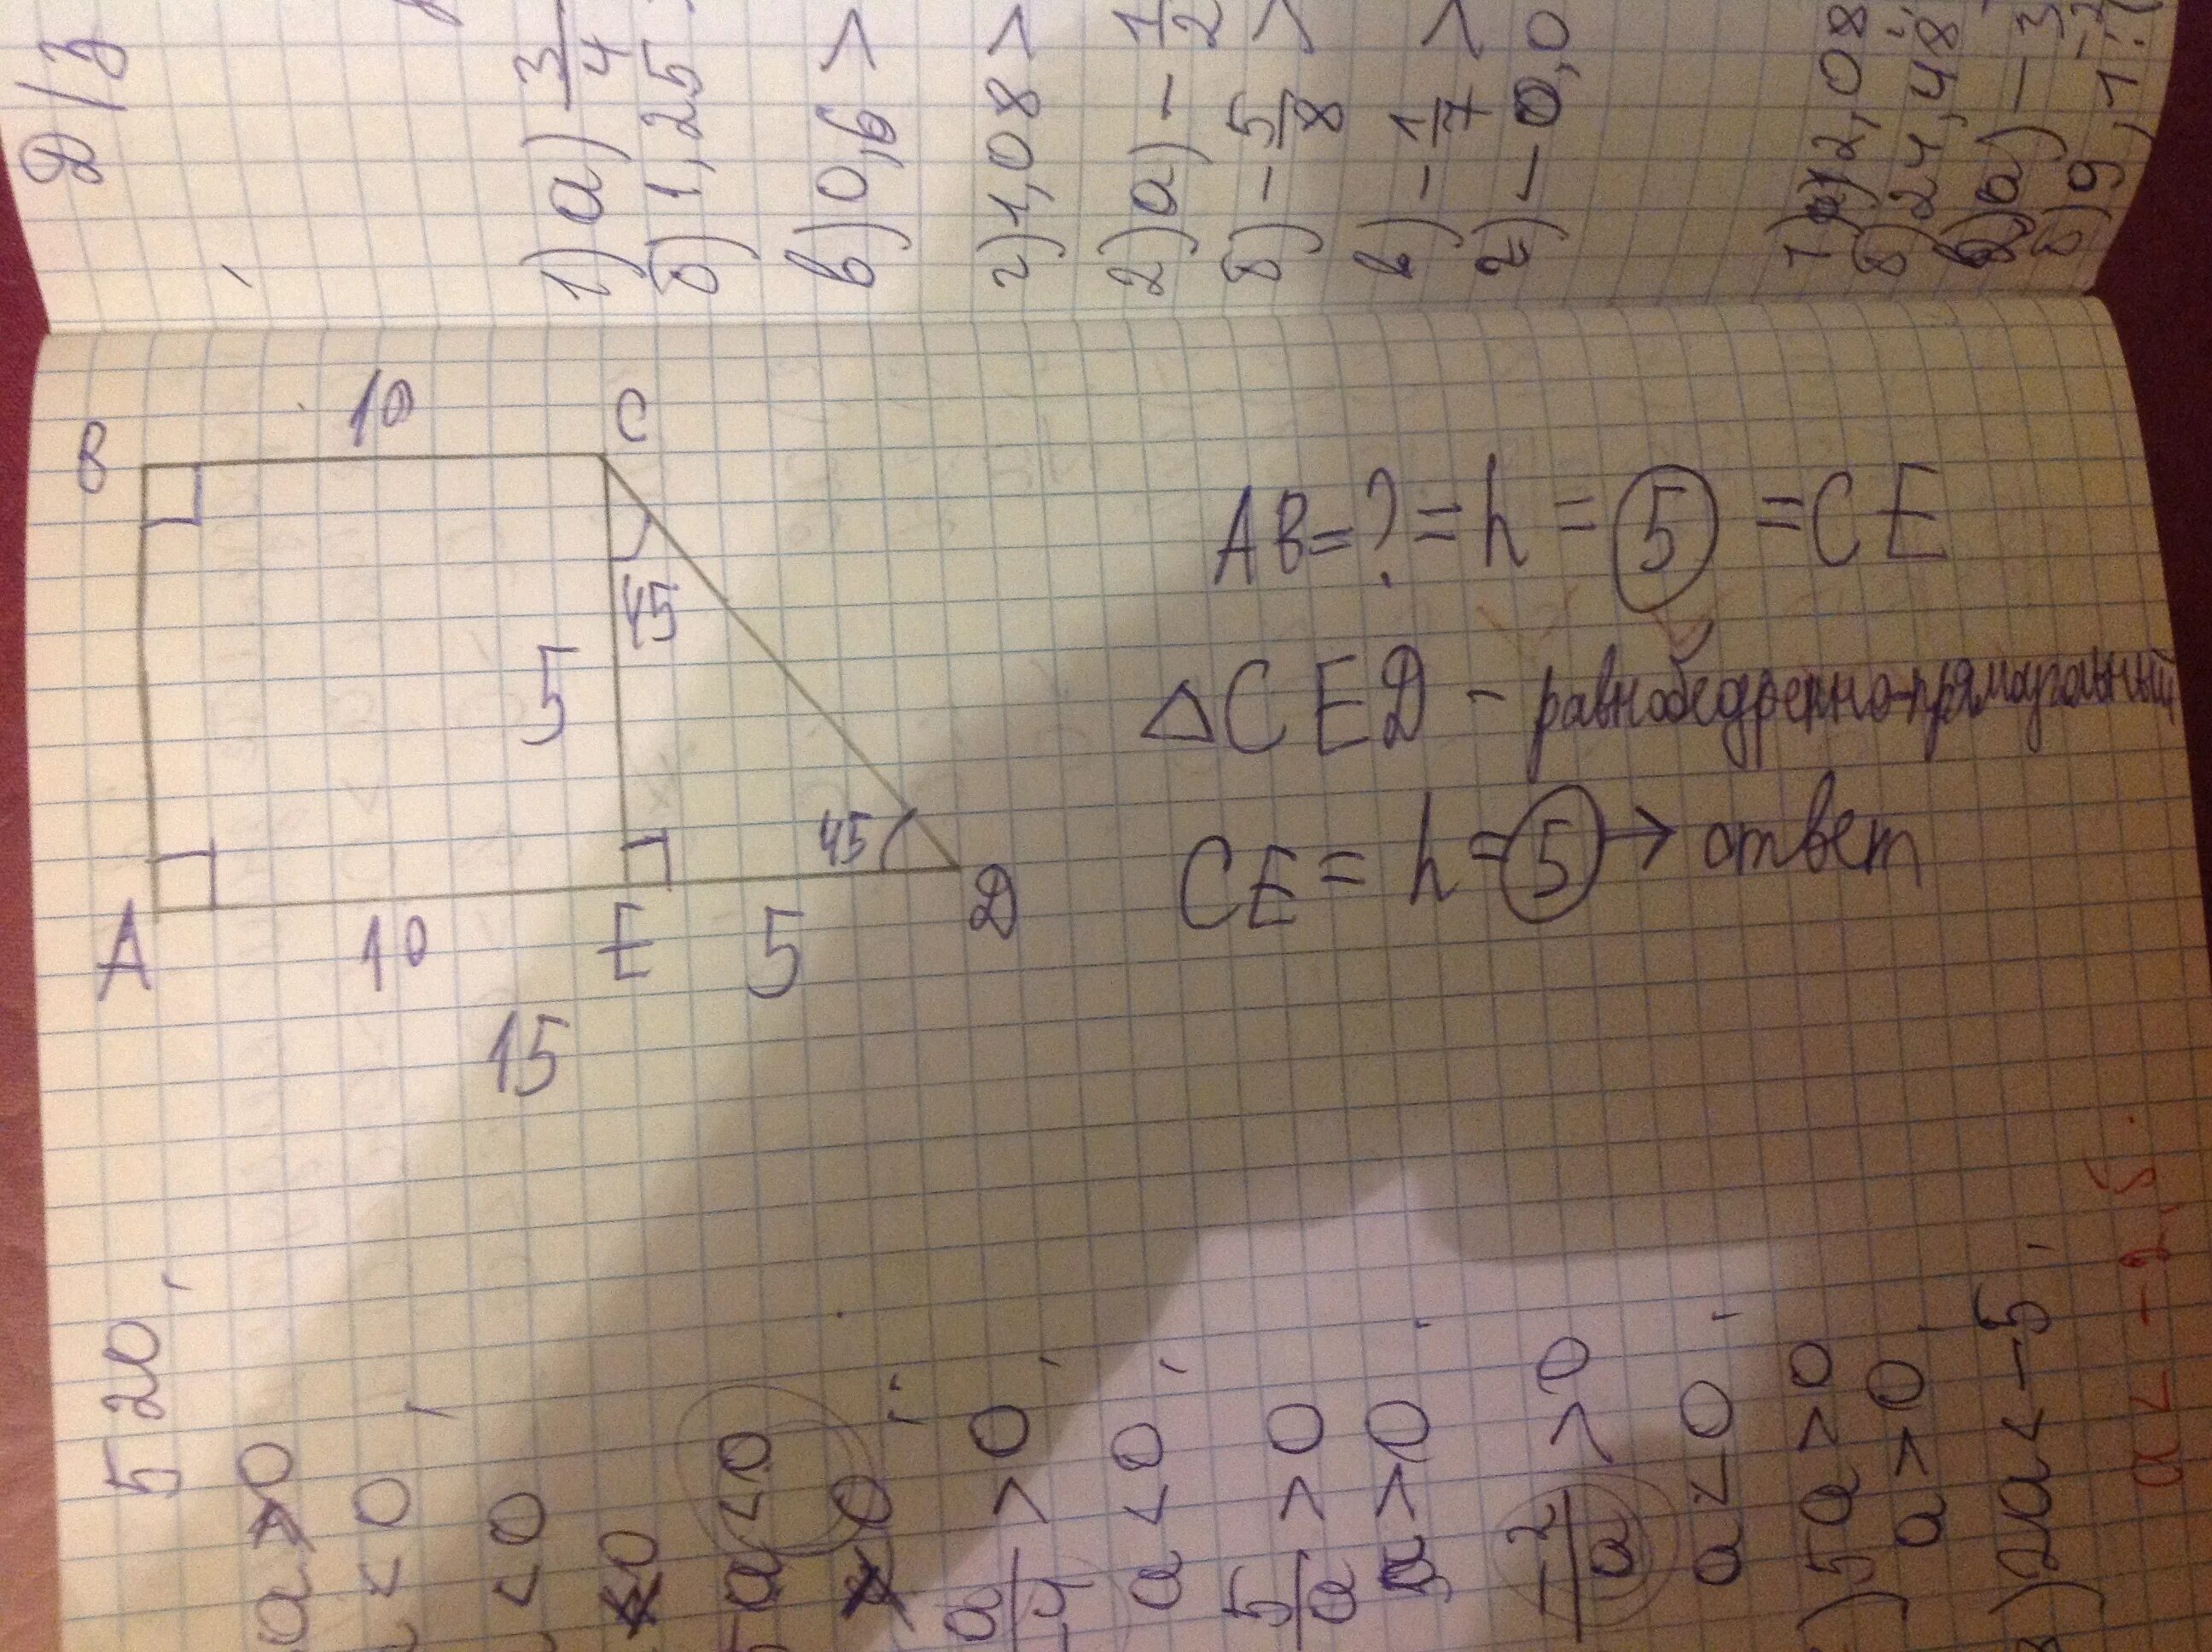 Д/З
1) а) 3/4
б) 1,25
в) 0,6 >
г) 1,08 >
2) а) - 1/2
б) - 5/8 >
в) - 1/7 >
г) - 0,0
1) а) 2,08
б) 24,48
2) а) - 3
б) 9,1
B 10 C
AB = ? = h = 5 = CE
45
5
△CED - равнобедренно-прямоугольный
45
CE = h = 5 → ответ
A 10 E 5 D
15
520
a > 0
< 0
< 0
5a < 0
> 0
a < 0
5/a > 0
a > 0
-2/a > 0
a < 0
) 5a > 0
a > 0
) 2a < -5
a < -2,5